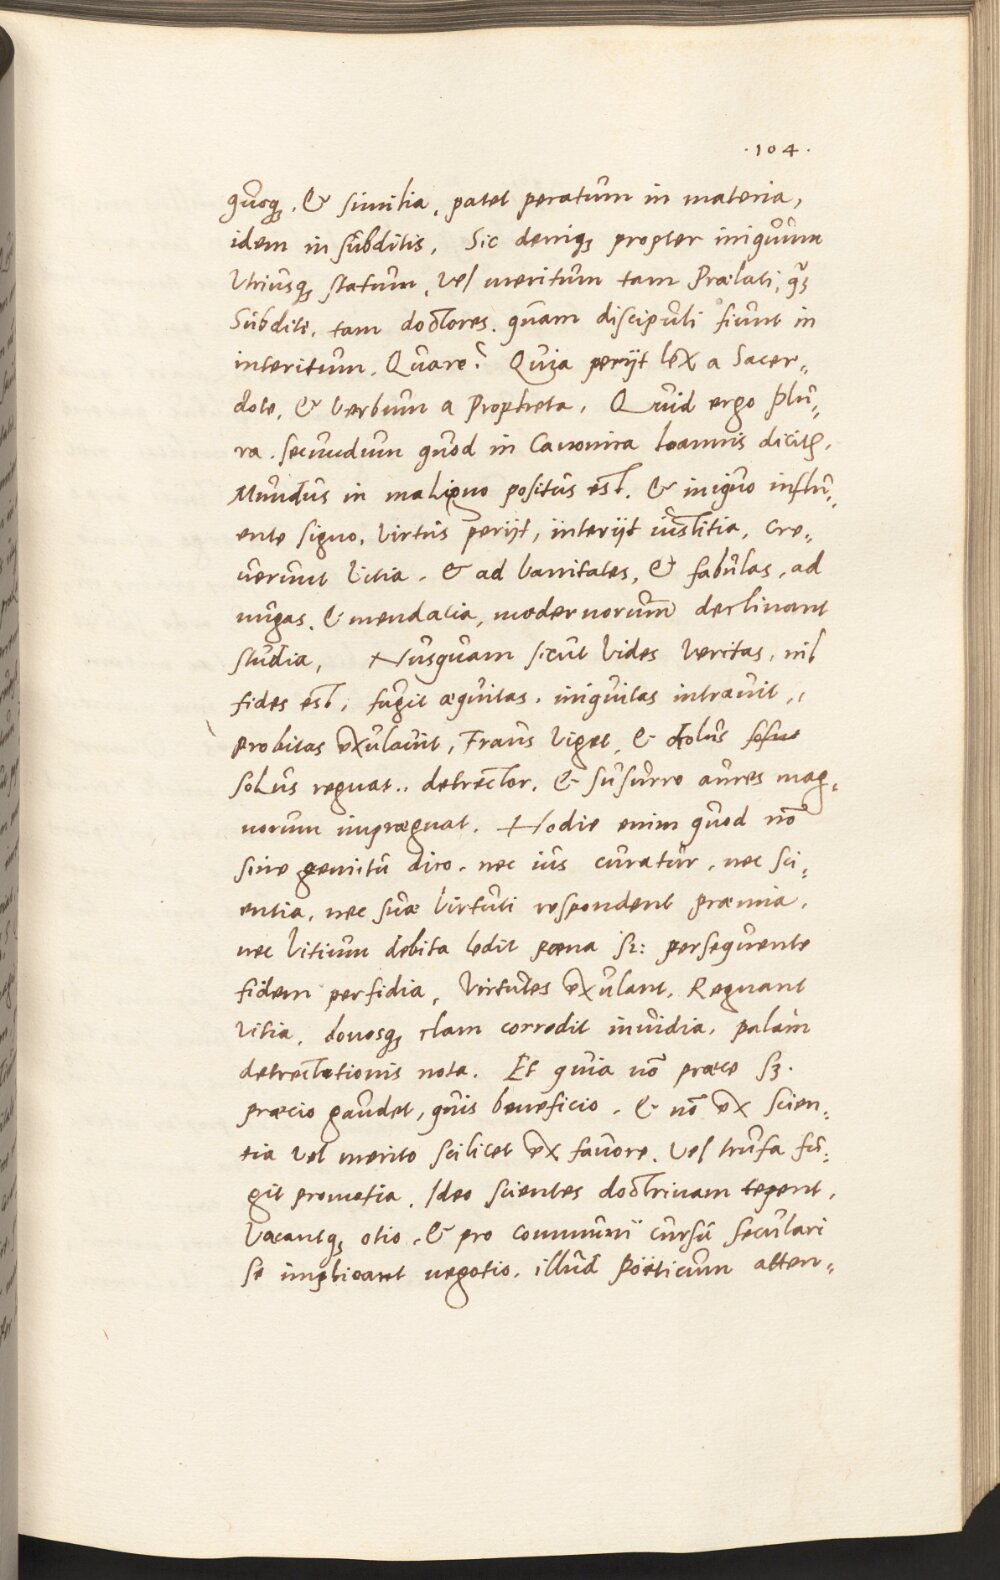 ·104·
quoq₃. & similia, patet peratum in materia,
idem in subditis. Sic deniq₃ propter iniquum
Vtriusq₃ statum, Vel meritum tam Prælati, q̃₃
Subditi. tam doctores. quam discipuli fiunt in
interitum. Quare? Quia perijt lex a Sacer„
dote, & verbum a Propheta. Quid ergo plu„
ra. secundum quod in Canonica Ioannis dicit̃.
Mundus in maligno positus est. & iniquo influ„
ente signo, Virtus perijt, interijt iustitia, cre„
uerunt Vitia. & ad Vanitates, & fabulas, ad
nugas. & mendacia, modernorum declinant
studia, Nusquam sicut Vides Veritas, nil
fides est; fugit æquitas. iniquitas intrauit,,
Probitas exulauit, Fraus Viget, & dolus
solus regnat.. detrector. & susurro aures mag„
norum imprægnat. Hodie enim quod nõ
sine gemitu dico. nec ius curatur, nec sci„
entia, nec suæ Virtuti respondent præmia,
nec Vitium debita ledit pœna s₂: persequente
fidem perfidia, Virtutes exulant. Regnant
Vitia, bonosq₃ clam corrodit inuidia, palam
detrectationis nota. Et quia nõ præce s₃.
præcio gaudet, quis beneficio. & nõ ex scien„
tia vel merito scilicet ex fauore. Vel trufa fu„
git prometia. Ideo scientes doctrinam tepent,
Vacantq₃ otio, & pro communi cursu seculari
se implicant negotio. illud Poëticum atten„